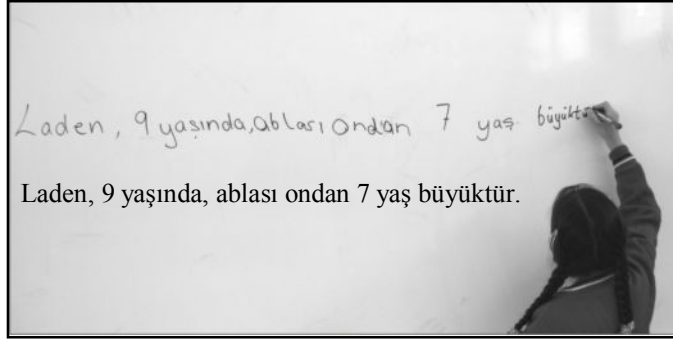 Laden, 9 yaşında, ablası ondan 7 yaş büyüktü
Laden, 9 yaşında, ablası ondan 7 yaş büyüktür.